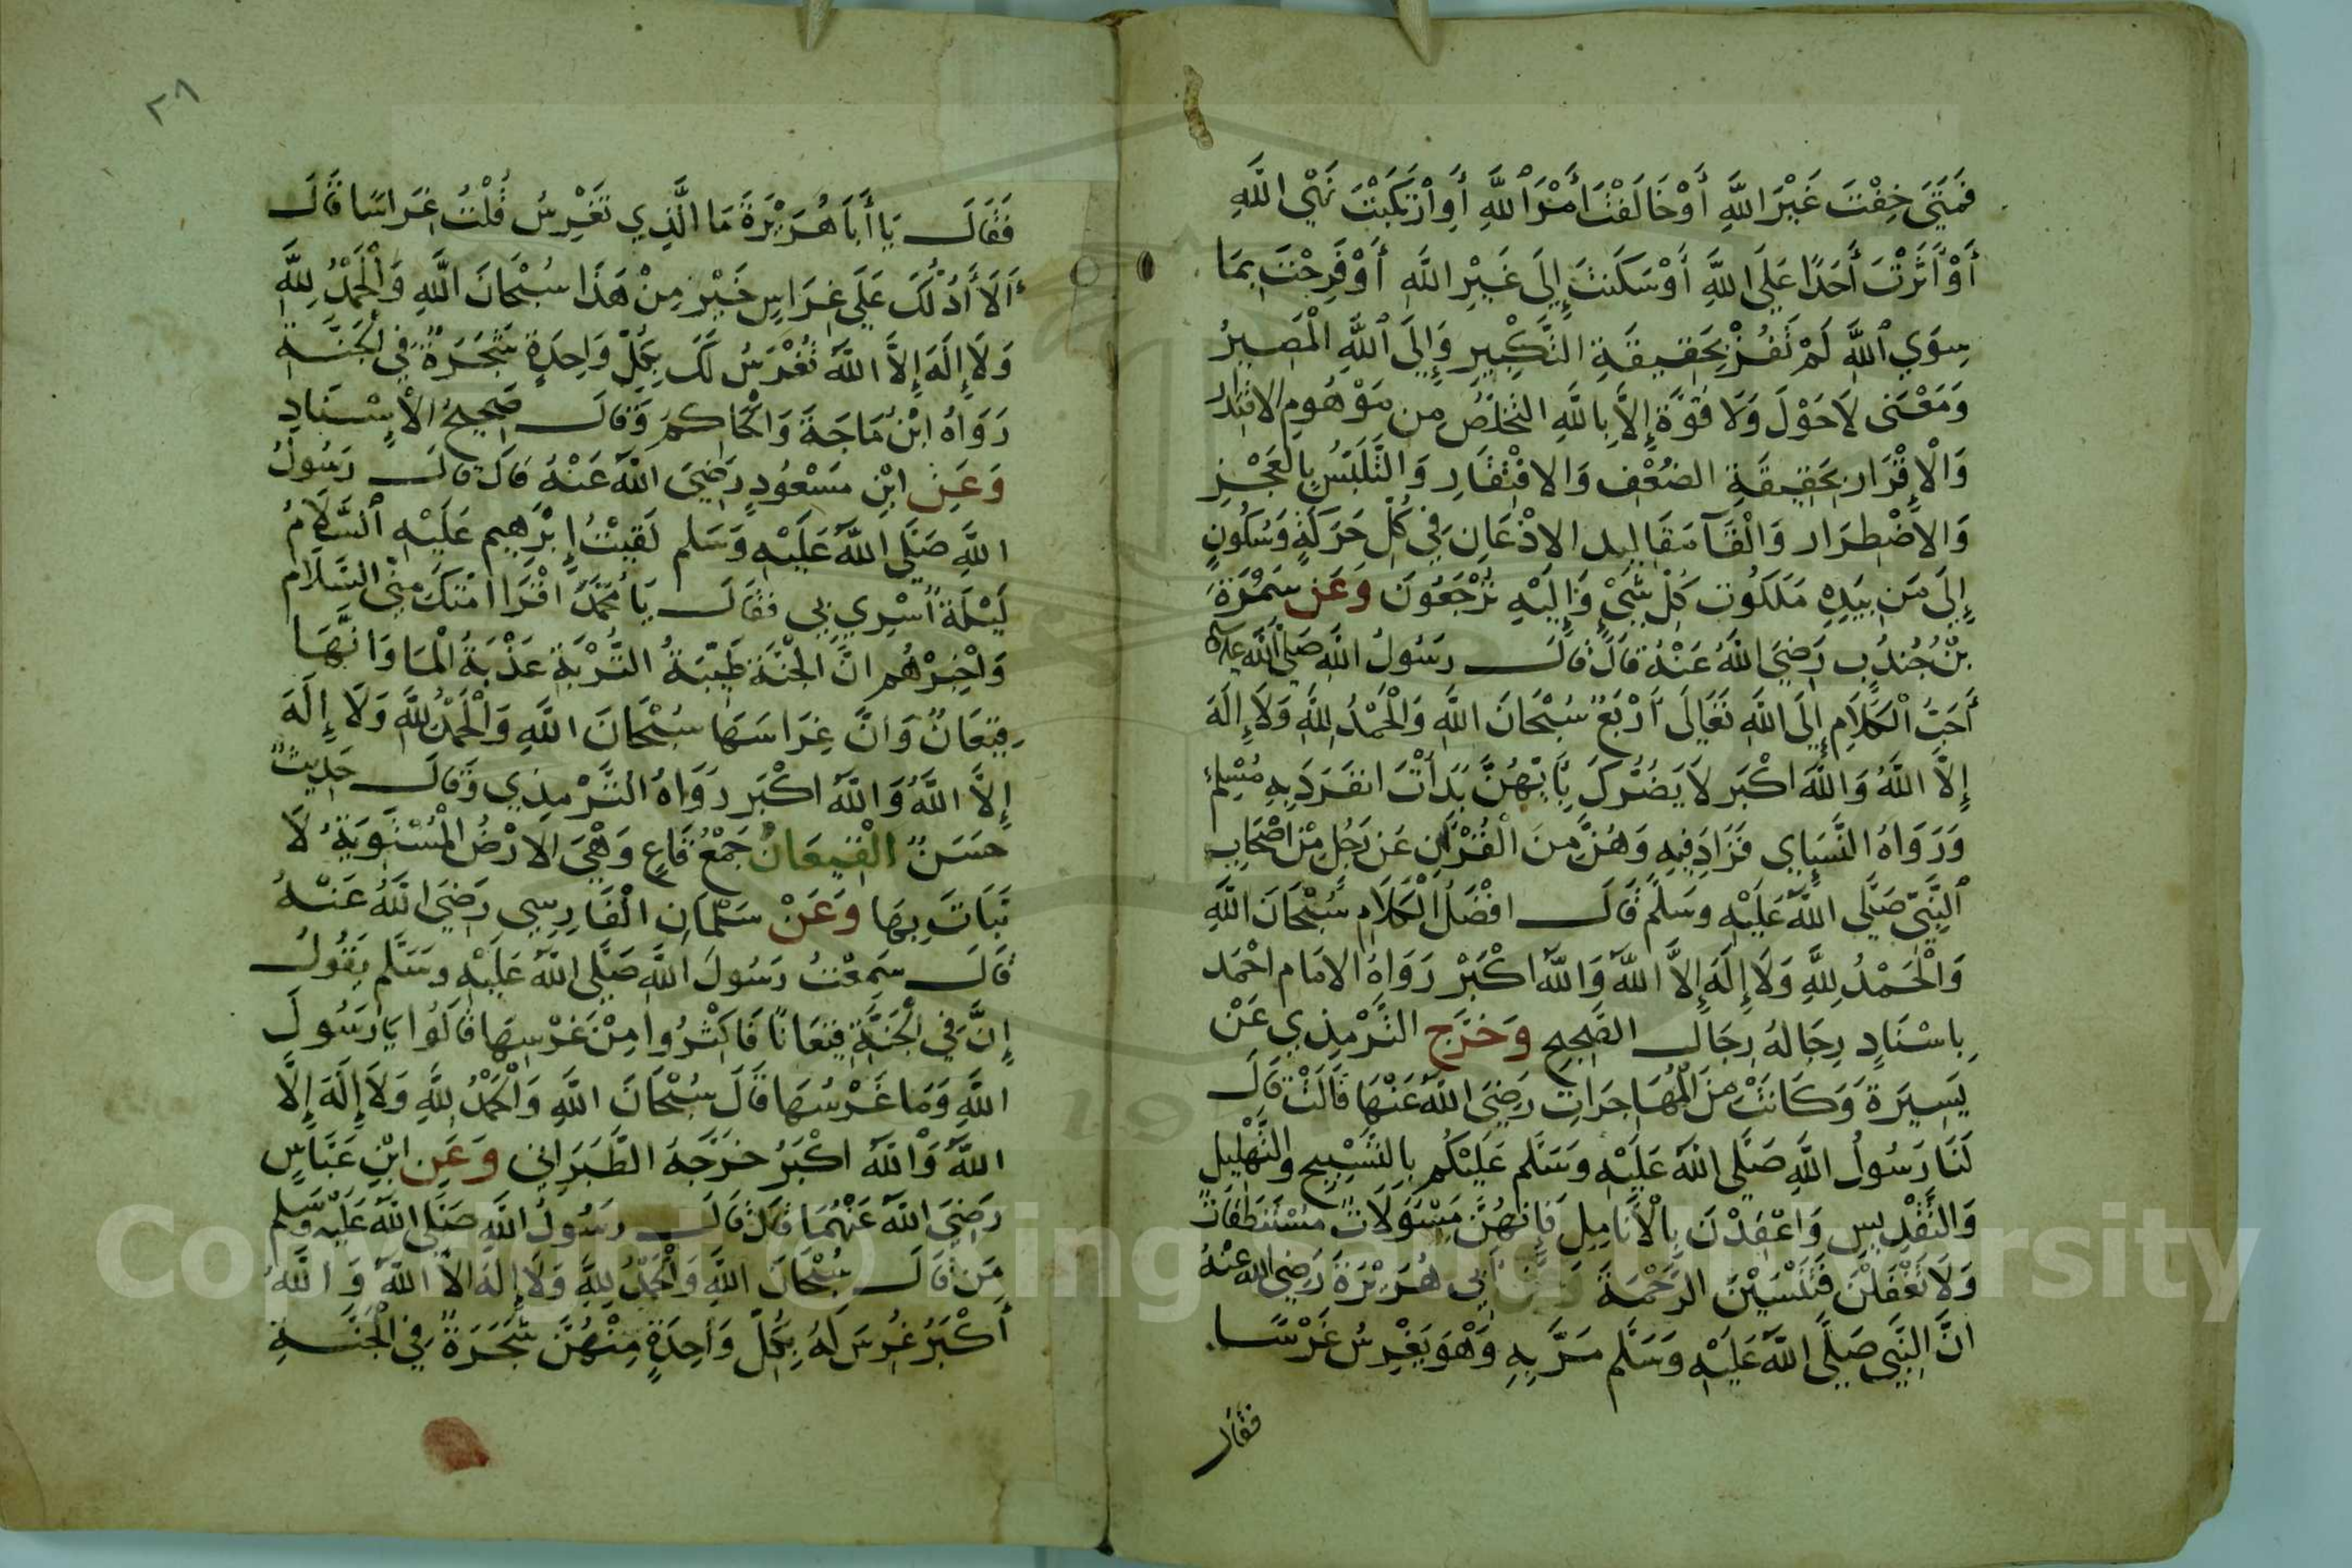 فَمَتَى خِفْتَ غَيْرَ اللَّهِ أَوْ خَالَفْتَ أَمْرَ اللَّهِ أَوِ ارْتَكَبْتَ نَهْيَ اللَّهِ
أَوْ آثَرْتَ أَحَدًا عَلَى اللَّهِ أَوْ سَكَنْتَ إِلَى غَيْرِ اللَّهِ أَوْ فَرِحْتَ بِمَا
سِوَى اللَّهِ لَمْ تَفُزْ بِحَقِيقَةِ التَّكْبِيرِ وَإِلَى اللَّهِ الْمَصِيرُ
وَمَعْنَى لَا حَوْلَ وَلَا قُوَّةَ إِلَّا بِاللَّهِ التَّخَلُّصُ مِن مَوْهُومِ الاقْتِدَار
وَالْإِقْرَار بِحَقِيقَةِ الضُّعْفِ وَالافْتِقَارِ وَالتَّلَبُّسِ بِالْعَجْزِ
وَالاضْطِرَار وَالْقَآ مَقَالِيد الاذْعَانِ فِي كُلِّ حَرَكَةٍ وَسُكُونٍ
إِلَى مَن بِيَدِهِ مَلَكُوت كُلِّ شَيْءٍ وَإِلَيْهِ تُرْجَعُونَ وَعَن سَمُرَةَ
بْنِ جُنْدُبٍ رَضِيَ اللَّهُ عَنْهُ قَالَ قَالَ رَسُولُ اللَّهِ صَلَّى اللَّهُ عليه
أَحَبُّ الْكَلَامِ إِلَى اللَّهِ تَعَالَى أَرْبَعٌ سُبْحَانَ اللَّهِ وَالْحَمْدُ لِلَّهِ وَلَا إِلَهَ
إِلَّا اللَّهُ وَاللَّهُ اكْبَر لَا يَضُرُّكَ بِأَيِّهِنَّ بَدَأْتَ انفَرَدَ بِهِ مُسْلِم
وَرَوَاهُ النَّسَايِي فَزَادَ فِيهِ وَهُنَّ مِنَ الْقُرْآنِ عَن رَجُلٍ مِنْ اصْحَابِ
النَّبِيِّ صَلَّى اللَّهُ عَلَيْهِ وسَلَّم قَالَ افْضَلُ الْكَلَامِ سُبْحَانَ اللَّهِ
وَالْحَمْدُ لِلَّهِ وَلَا إِلَهَ إِلَّا اللَّهُ وَاللَّهُ اكْبَرُ رَوَاهُ الامَام احْمَد
بِاسْنَادٍ رِجَالهُ رِجَال الصَّحِيحِ وَخَرَّجَ التِّرْمِذِي عَنْ
يَسِيرَةَ وَكَانَتْ مِنَ الْمُهَاجِرَاتِ رَضِيَ اللَّهُ عَنْهَا قَالَتْ قَالَ
لَنَا رَسُولُ اللَّهِ صَلَّى اللَّهُ عَلَيْهِ وسَلَّم عَلَيْكُم بِالتَّسْبِيحِ وَالتَّهْلِيلِ
وَالتَّقْدِيسِ وَاعْقِدْنَ بِالْأَنَامِلِ فَإِنَّهُنَّ مَسْئُولَاتٌ مُسْتَنْطَقَاتٌ
وَلَا تَغْفَلْنَ فَتَنْسَيْنَ الرَّحْمَةَ أَبِي هُرَيْرَةَ رَضِيَ اللَّه عَنْهُ
انَّ النَّبِي صَلَّى اللَّهُ عَلَيْهِ وَسَلَّم مَرَّ بِهِ وَهْوَ يَغْرِسُ غَرْسًا
فَقَالَ
٢٨
فَقَالَ يَا أَبَا هُرَيْرَةَ مَا الَّذِي تَغْرِسُ قُلْتُ غِرَاسًا قَالَ
أَلَا أَدُلُّكَ عَلَى غِرَاسٍ خَيْرٍ مِنْ هَذَا سُبْحَانَ اللَّهِ وَالْحَمْدُ لِلَّهِ
وَلَا إِلَهَ إِلَّا اللَّهُ تُغْرَسُ لَكَ بِكُلِّ وَاحِدَةٍ شَجَرَةٌ فِي الْجَنَّةِ
رَوَاهُ ابْنُ مَاجَةَ وَالْحَاكِمُ وَقَالَ صَحِيحُ الْإِسْنَادِ
وَعَنِ ابْنِ مَسْعُودٍ رَضِيَ اللَّهُ عَنْهُ قَالَ قَالَ رَسُولُ
اللَّهِ صَلَّى اللَّهُ عَلَيْهِ وَسَلم لَقِيتُ إِبْرَهِيم عَلَيْهِ السَّلَامُ
لَيْلَةَ أُسْرِي بِي فَقَالَ يَا مُحَمَّدُ اقْرَا امَّتَكَ مِنِّي السَّلَام
وَاخْبِرْهُم انَّ الْجَنَّةَ طَيِّبَةُ التُّرْبَةِ عَذْبَةُ الْمَا وَانَّهَا
قِيعَانٌ وَانَّ غِرَاسَهَا سُبْحَانَ اللَّهِ وَالْحَمْدُ لِلَّهِ وَلَا إِلَهَ
إِلَّا اللَّهُ وَاللَّهُ اكْبَر رَوَاهُ التِّرْمِذِي وَقَالَ حَدِيثٌ
حَسَنٌ الْقِيعَانُ جَمْعُ قَاعٍ وَهْيَ الارْضُ الْمُسْتَوِيَةُ لَا
نَبَاتَ بِهَا وَعَنْ سَلْمَانِ الْفَارِسِي رَضِيَ اللَّهُ عَنْهُ
قَالَ سَمِعْتُ رَسُولَ اللَّهِ صَلَّى اللَّهُ عَلَيْهِ وسَلَّم يَقُولُ
إِنَّ فِي الْجَنَّةِ قِيعَانًا فَاكْثِرُوا مِنْ غَرْسِهَا قَالُوا يَا رَسُولَ
اللَّهِ وَمَا غَرْسُهَا قَالَ سُبْحَانَ اللَّهِ وَالْحَمْدُ لِلَّهِ وَلَا إِلَهَ إِلَّا
اللَّهُ وَاللَّهُ اكْبَرُ خَرَّجَهُ الطَّبَرَانِي وَعَنِ ابْنِ عَبَّاسٍ
رَضِيَ اللَّهُ عَنْهُمَا قَالَ قَالَ رَسُولُ اللَّهِ صَلَّى اللَّهُ عَلَيْهِ وَسَلم
مَن قَالَ سُبْحَانَ اللَّهِ وَالْحَمْدُ لِلَّهِ وَلَا إِلَهَ الَّا اللَّهُ وَاللَّهُ
أَكْبَرُ غُرِسَ لَهُ بِكُلِّ وَاحِدَةٍ مِنْهُنَّ شَجَرَةٌ فِي الْجَنَّةِ
Copyright © King Saud University